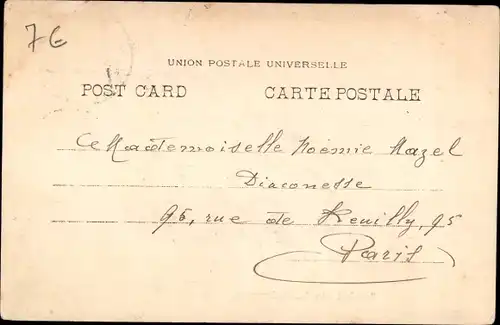 7€
UNION POSTALE UNIVERSELLE
POST CARD CARTE POSTALE
A Mademoiselle Noémie Mazel
Diaconesse
95, rue de Reuilly, 95
Paris